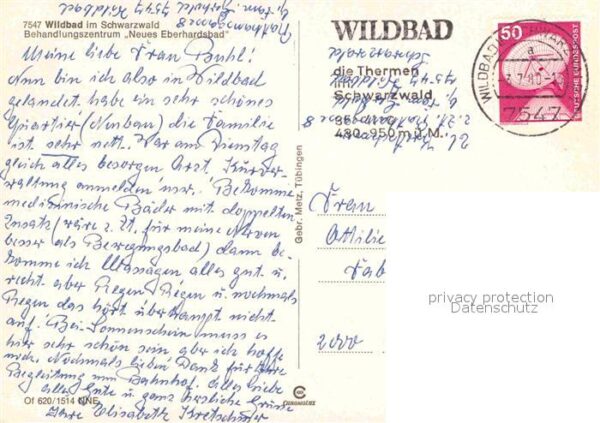 7547 Wildbad im Schwarzwald
Behandlungszentrum „Neues Eberhardsbad"
Meine liebe Frau Buhl!
Nun bin ich also in Wildbad
gelandet. habe ein sehr schönes
Quartier (Neubau) die Familie
ist sehr nett. War am Dienstag
gleich alles besorgen, Arzt, Kurver-
waltung anmelden usw. Bekomme
medizinische Bäder mit doppelten
Zusatz (wäre z. Zt. für meine Nerven
besser als Bewegungsbad) dann be-
komme ich Massagen alles gut u.
recht aber Regen Regen u. nochmals
Regen das hört überhaupt nicht
auf. Bei Sonnenschein muss es
hier sehr schön sein aber ich hoffe
noch. Nochmals lieben Dank für Ihre
Begleitung zum Bahnhof. Alles Liebe
alles Gute u. ganz herzliche Grüsse
Ihre Elisabeth
Of 620/1514 NNE
Gebr. Metz, Tübingen
WILDBAD
die Thermen
im
Schwarzwald
430-950 m ü.M.
WILDBAD
a
7547
50
DEUTSCHE BUNDESPOST
Frau
Ottilie
2000
privacy protection
Datenschutz